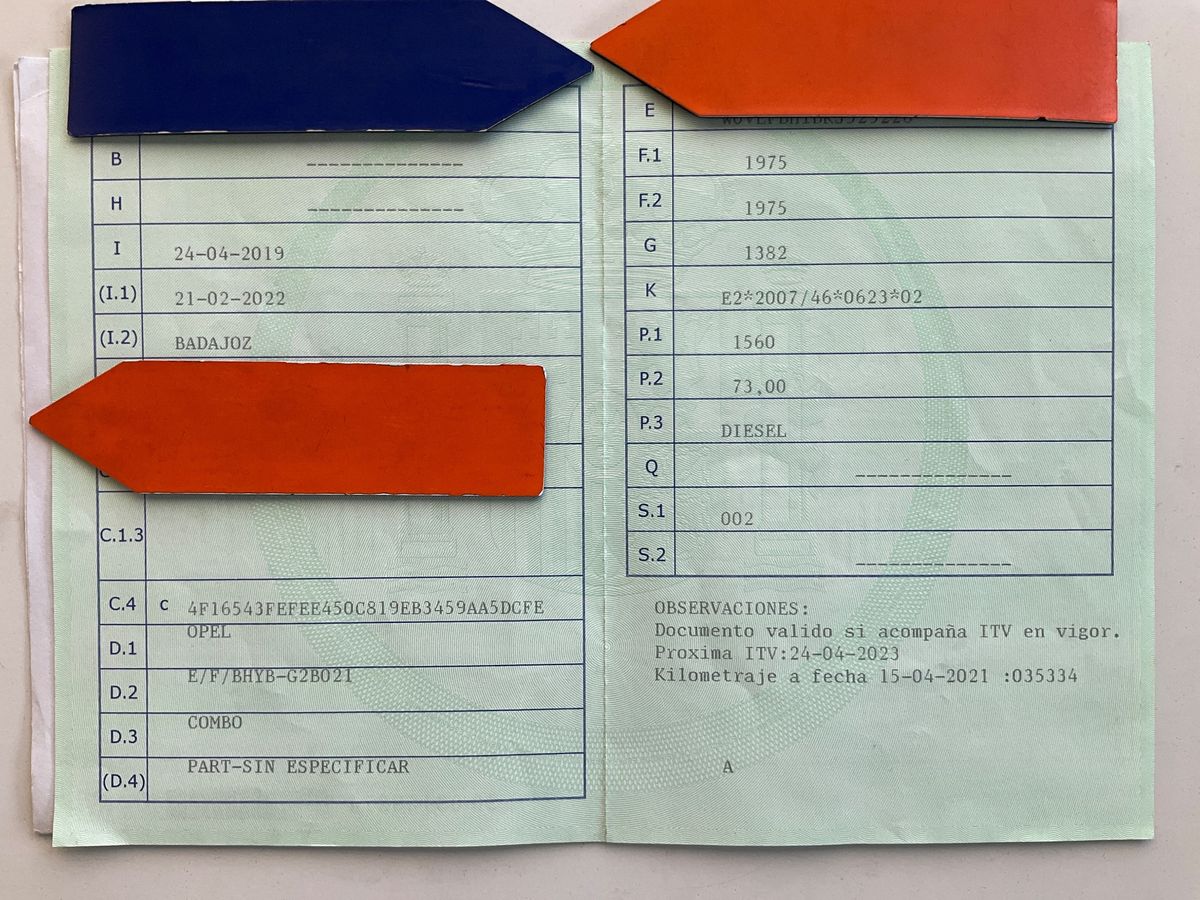 B -------------
H -------------
I 24-04-2019
(I.1) 21-02-2022
(I.2) BADAJOZ
C.1.3
C.4 c 4F16543FEFEE450C819EB3459AA5DCFE
D.1 OPEL
D.2 E/F/BHYB-G2B021
D.3 COMBO
(D.4) PART-SIN ESPECIFICAR
E
F.1 1975
F.2 1975
G 1382
K E2*2007/46*0623*02
P.1 1560
P.2 73,00
P.3 DIESEL
Q -------------
S.1 002
S.2 -------------
OBSERVACIONES:
Documento valido si acompaña ITV en vigor.
Proxima ITV:24-04-2023
Kilometraje a fecha 15-04-2021 :035334
A